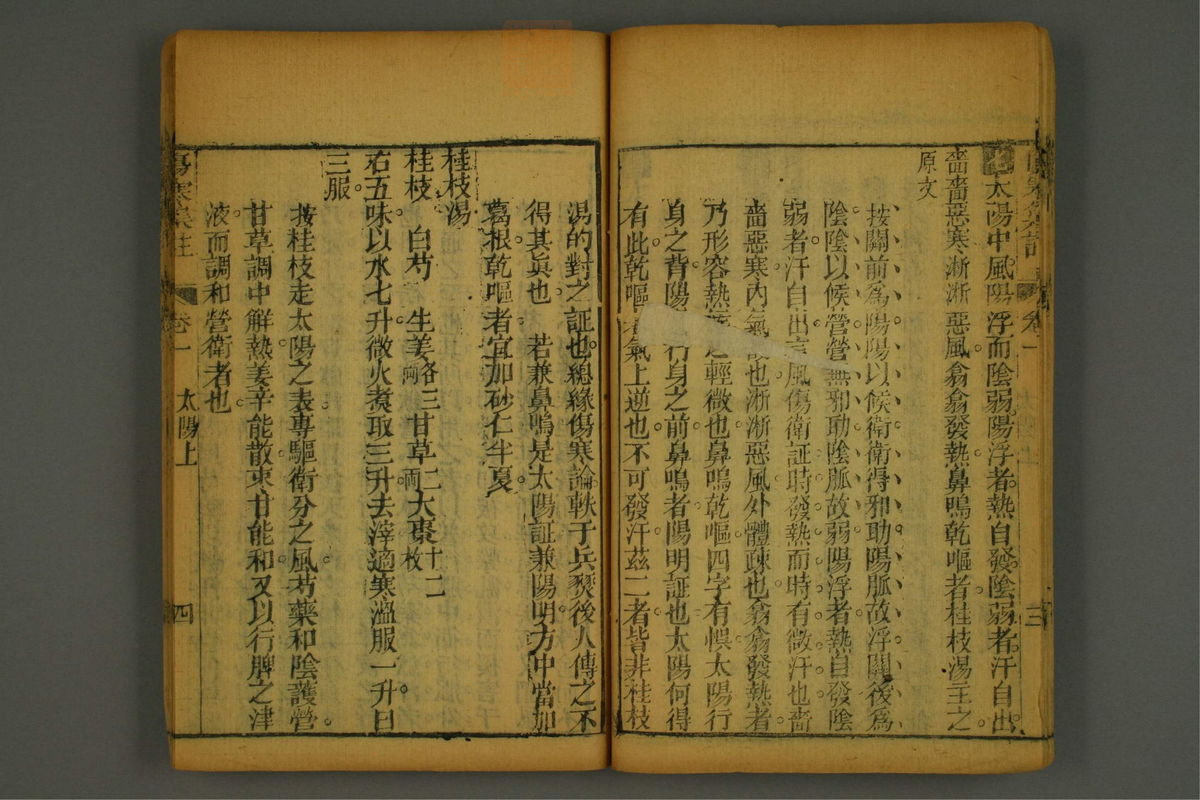 太陽中風陽浮而陰弱陽浮者熱自發陰弱者汗自出
嗇嗇惡寒淅淅惡風翕翕發熱鼻鳴乾嘔者桂枝湯主之
原文
按關前為陽陽以候衛衛得邪助陽脈故浮關後為
陰陰以候營營無邪助陰脈故弱陽浮者熱自發陰
弱者汗自出言風傷衛証時發熱而時有微汗也嗇
嗇惡寒內氣也淅淅惡風外體疎也翕翕發熱者
乃形容熱輕微也鼻鳴乾嘔四字有悞太陽行
身之背陽行身之前鼻鳴者陽明証也太陽何得
有此乾嘔氣上逆也不可發汗茲二者皆非桂枝
卷一
三
湯的對之証也總緣傷寒論軼于兵燹後人傳之不
得其真也 若兼鼻鳴是太陽証兼陽明方中當加
葛根乾嘔者宜加砂仁半夏
桂枝湯
桂枝 白芍 生姜各三兩 甘草二兩 大棗十二枚
右五味以水七升微火煮取三升去滓適寒溫服一升日
三服
按桂枝走太陽之表專驅衛分之風芍藥和陰護營
甘草調中解熱姜辛能散棗甘能和又以行脾之津
液而調和營衛者也
卷一 太陽上
四